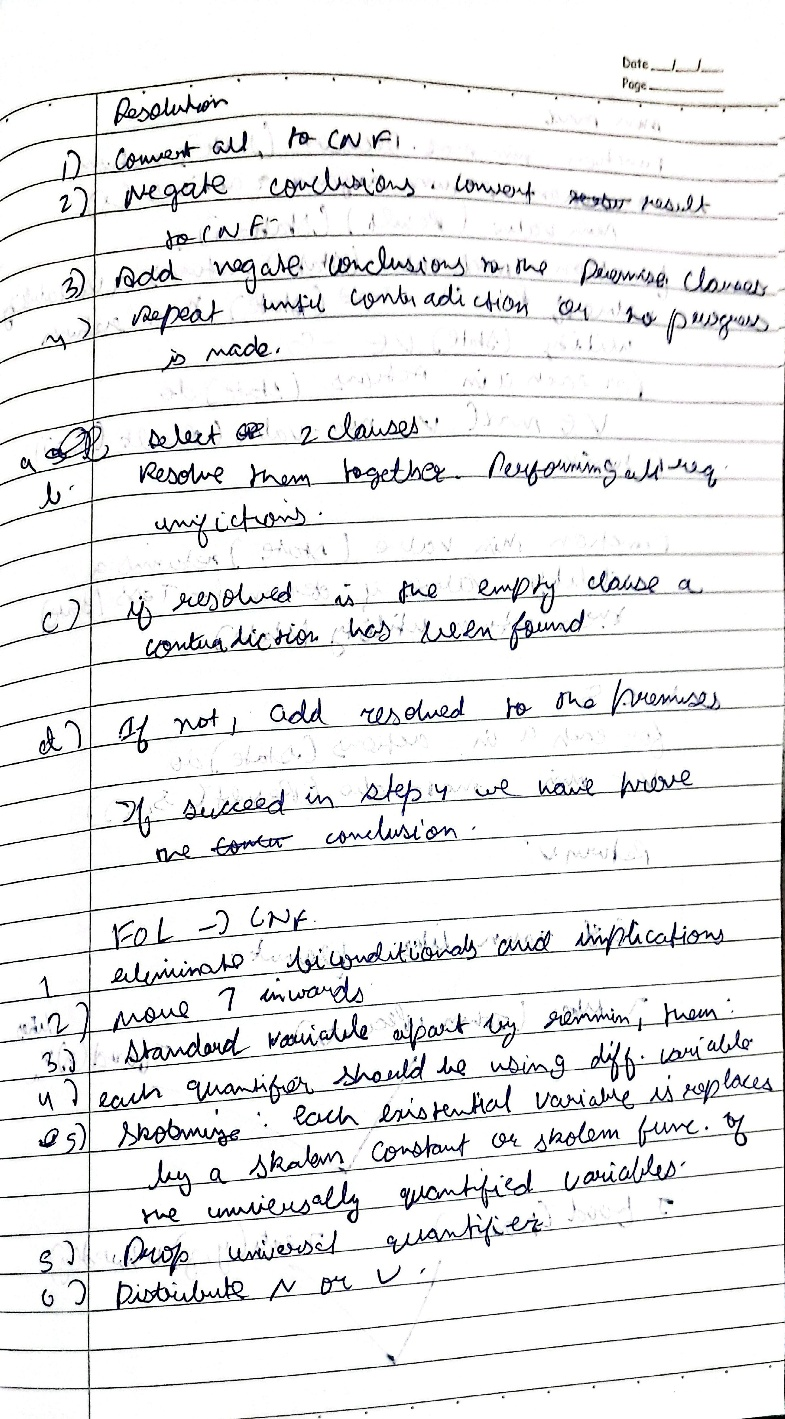 Date __/__/__
Page
Resolution
1) Convert all, to CNF.
2) Negate conclusions. convert result
to CNF.
3) Add negate conclusions to the premise clauses
4) Repeat until contradiction or no progress
is made.
a select 2 clauses.
b. Resolve them together. Performing all req.
unifictions.
c) if resolved is the empty clause a
contradiction has been found.
d) If not, add resolved to the premises
If succeed in step 4 we have prove
the conclusion.
FOL → CNF
1 eleminate biconditionals and implications
2) Move ¬ inwards
3.) Standard variable apart by renmin, them:
4) each quantifier should be using diff. variable
5) Skolmize: each existential variable is replaces
by a skolem constant or skolem func. of
the universally quantified variables.
5) Drop universal quantifier
6) Distribute ∧ or ∨.